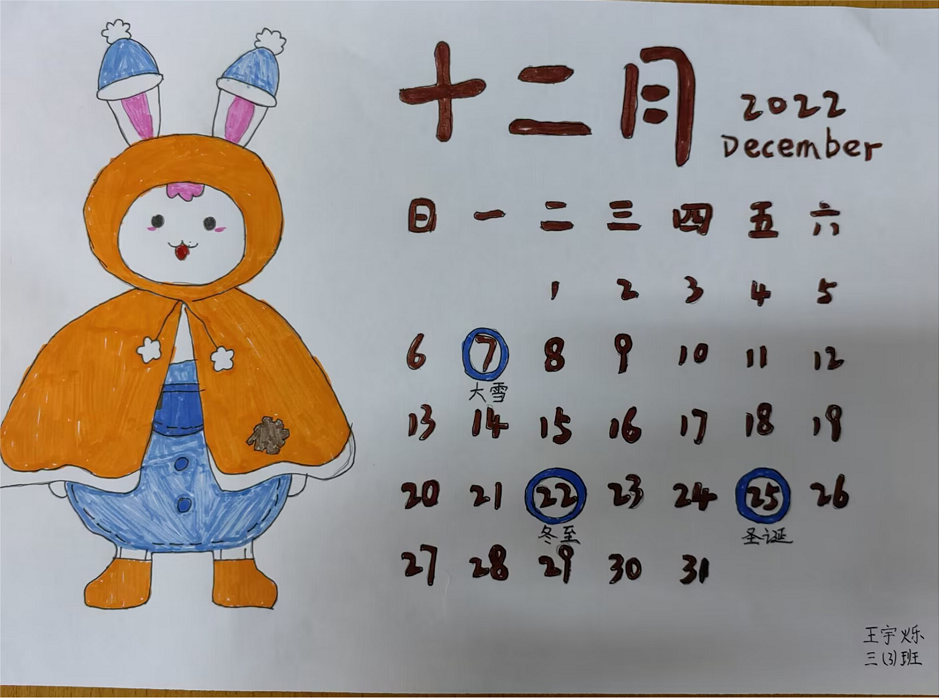 十二月 2022
December
日 一 二 三 四 五 六
1 2 3 4 5
6 7 8 9 10 11 12
大雪
13 14 15 16 17 18 19
20 21 22 23 24 25 26
冬至 圣诞
27 28 29 30 31
王宇烁
三(3)班